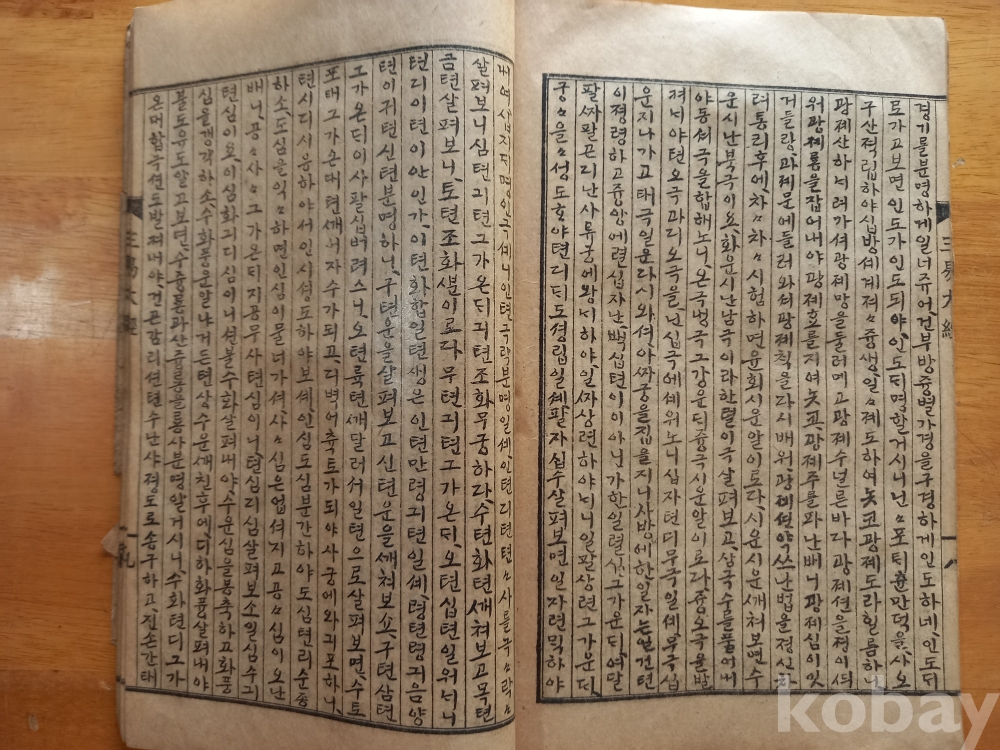 경기를분명하게일너쥬어,건부방즁별가경을구경하게인도하네,인도되
토가고보면인도가인도되야,인도되명할거시니,넌〃포틱츈만덕을,사오
구산젹립하야십방셰계져〃즁생,일〃졔도하여노코,광졔도라일름하니
광졔산하셔려가셔광졔망을둘러메고광졔수널른바다광졔션을졍이
워광졔룡을잡어내야광졔호를지여노코,광졔주를파난배니광졔심이잇
거들랑,과졔문에들러와셔광졔칙을다시배워,광졔션약쓰난법을졍신하
려통리후에,차〃차〃시험하면윤회시운알이로다,시운시운깨쳐보면수
운시난북극이요,화운시난남극이라한렬이극살펴보고,삼국숨를풀어내
야동셔극을합해노니온극벙극그가운듸즁극시운알이로다즁오극을발
져니야텬오극과디오극을넌십극에셰워노니십자텬디무극일셰무극십
운지나가고태극일운라시와셔,아짜궁을집을지니사방에한일자는열건텬
이졍령하고즁앙에련십자난,백십텬이이아니가한일렬십그가운듸,여달
팔짜팔끈리난사류궁에왕셔하야,일짜상련하야비니일팔상련그가운듸,
궁〃을〃셩도호야텬디듸도셩립일셰팔자십수살펴보면일자련믹하야
三易大經
내여십자되명인국셰니인텬극락분명일셰,인텬디텬텬〃사를극〃락〃
살펴보니심텬긔텬그가온듸긔텬조화무궁하다,수텬화텬깨쳐보고목텬
금텬살펴보니,토텬조화분이로다무텬긔텬그가온듸,오텬십텬일워서니
텬디이텬이안인가,이텬화합일텬생은인텬만령긔텬일셰,령텬령긔음양
텬이귀텬신텬분명하니,구텬운을살펴보고신텬운을깨쳐보쇼,구텬삼텬
그가온듸이사팔십버려스니,오텬륙텬깨달러서일텬으로살펴보면,수토
포태그가은대텬깨너자수가되고,디벽어츅토가되야사궁에와긔포하니,
텬시디시운하야서인시셩도하야보셰인심도심분간하야도심텬리순종
하소,도심을익〃하면인심이물너가셔,사〃심은업셔지고공〃심이오난
배니,공〃사〃그가온듸지공무사텬심이니,텬심리심살펴보소일심수긔
텬심이요,이심화긔디심이니션불수화살펴내야,수운심을통츅하고화풍
심을갱각하소,수화동운알냐거든텬상수운깨친후에,디하화풍살펴내야
불도유도알고보면,수즁룡과산즁룡을통사분명알거시니,수화텬디그가
온대합극션도발져내야,건곤감리션텬수난사졍도로송구하고,진손간태
三易大經
九
kobay